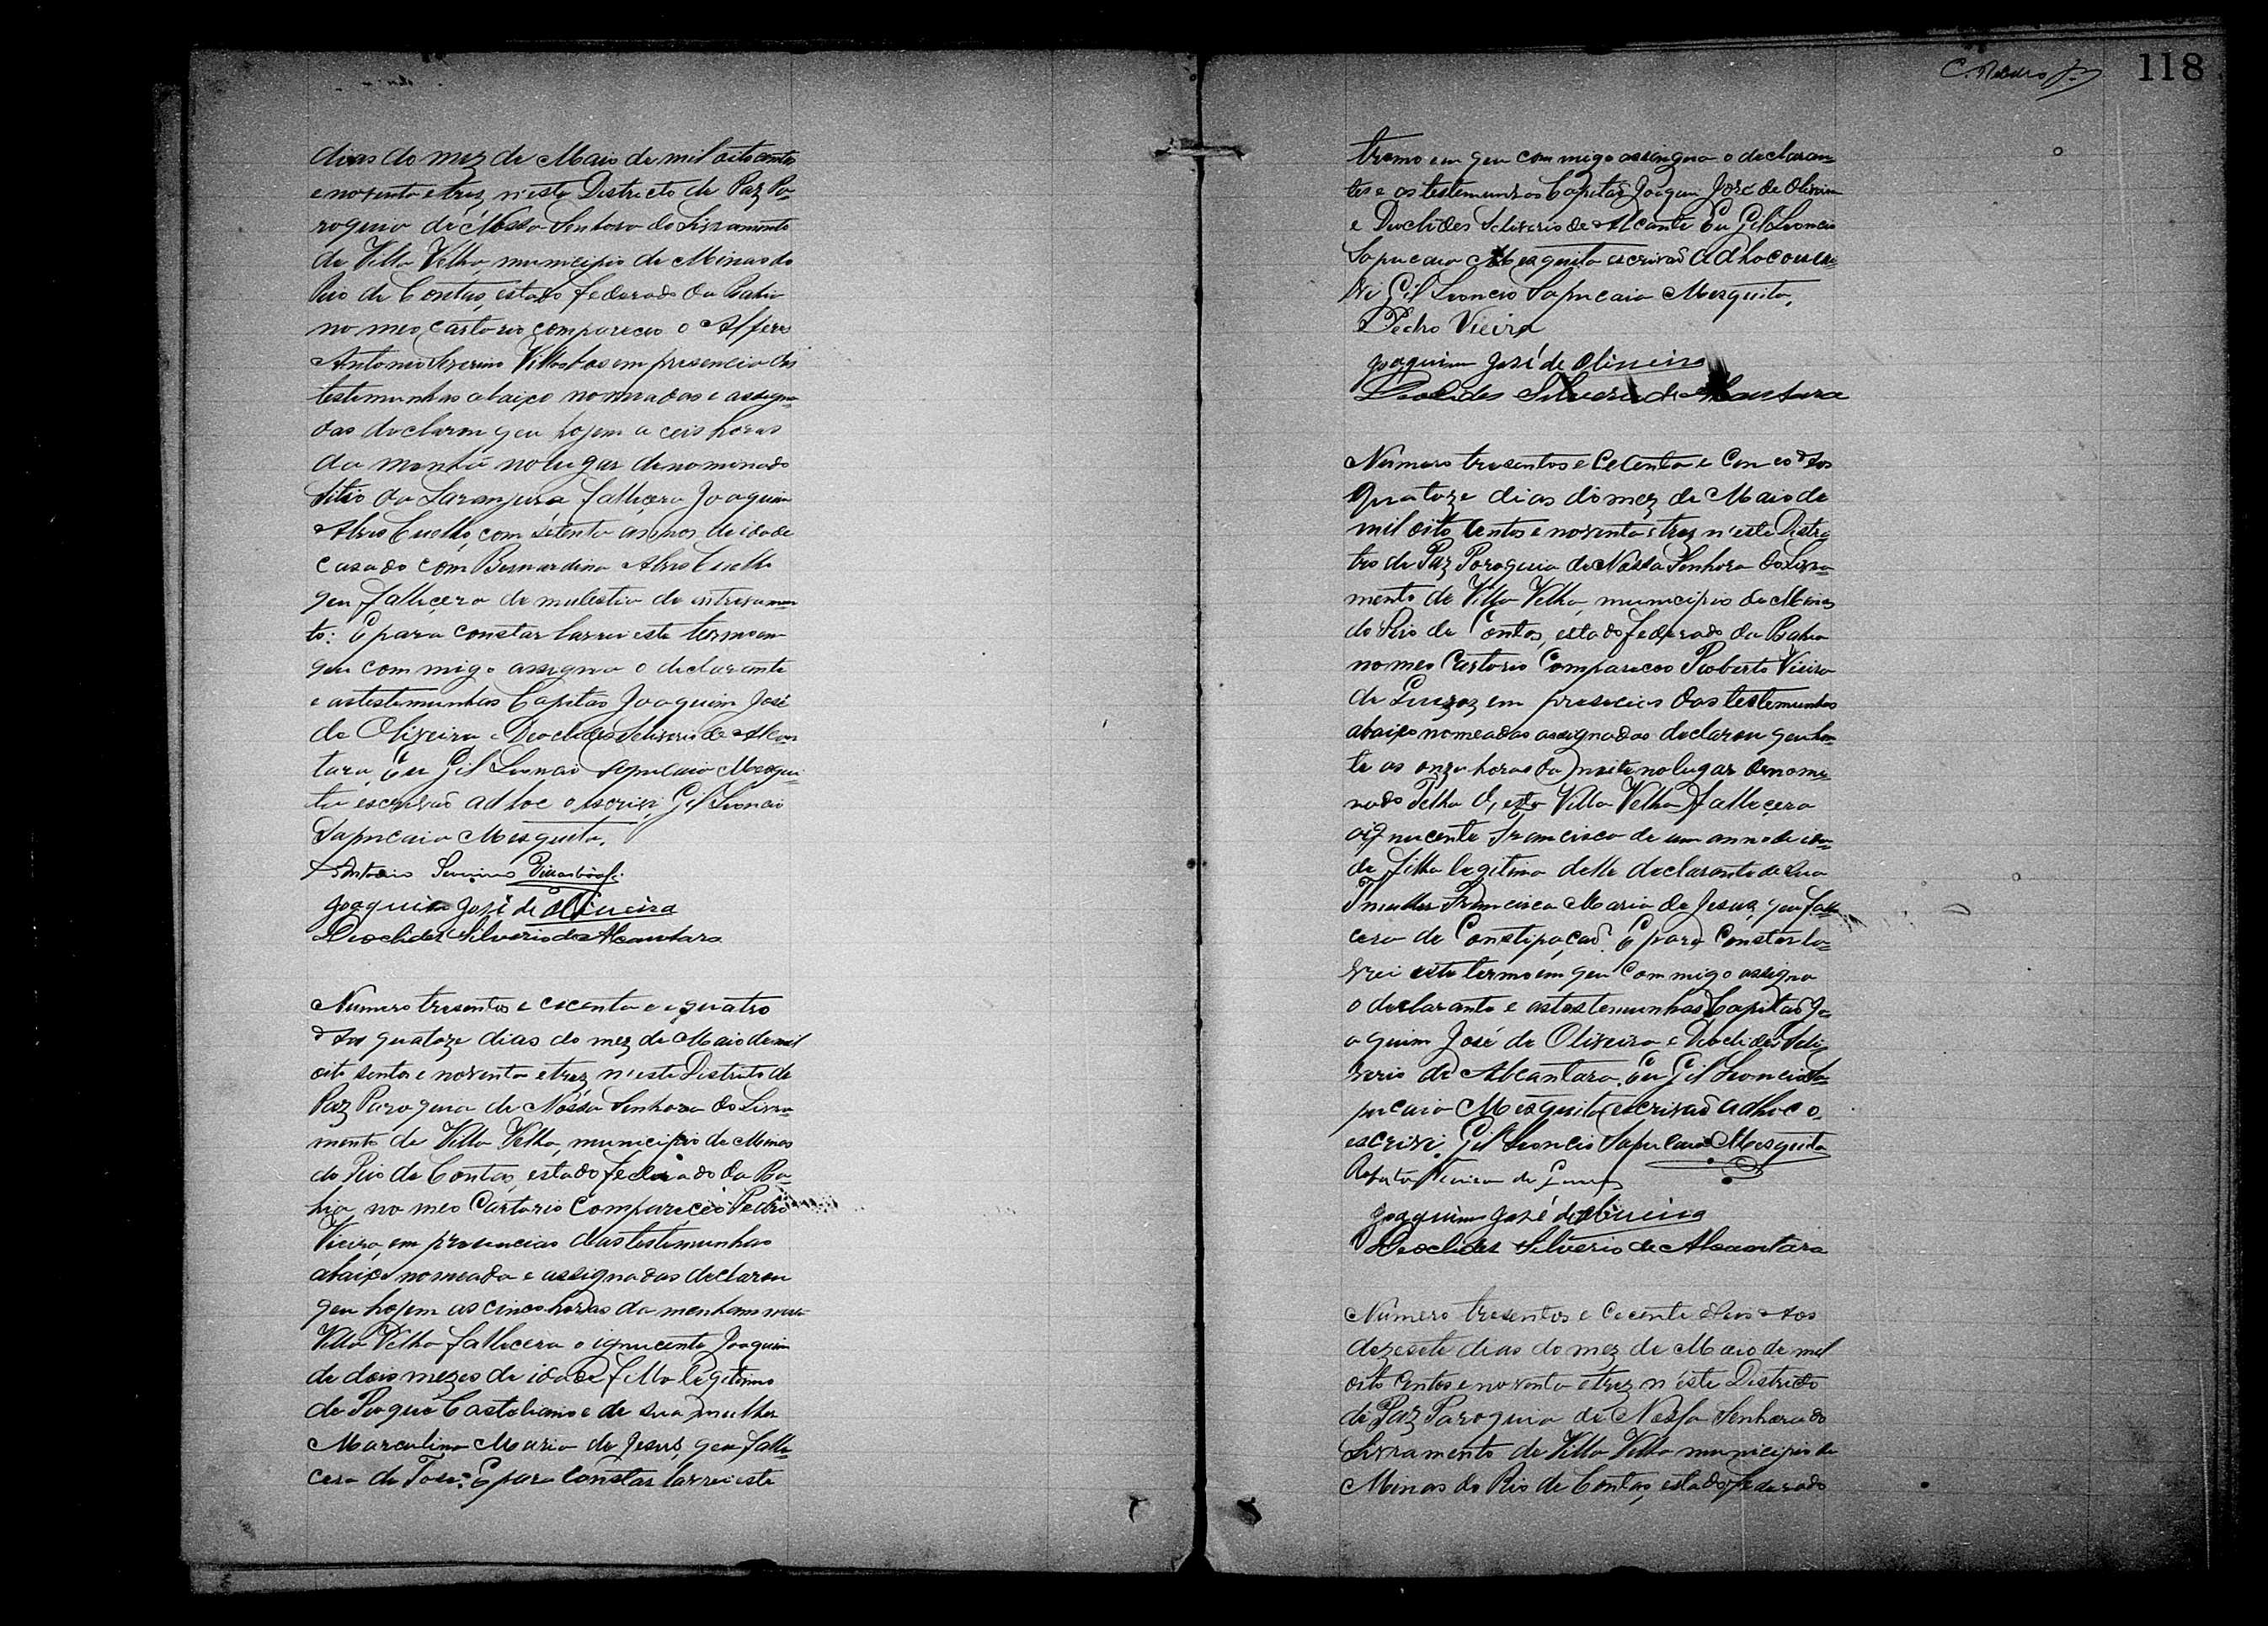 dias do mez de Maio de mil oito centos
e noventa e trez, n'este Districto de Paz Pa-
roquia de Nossa Senhora do Livramento
de Villa Velha, municipio de Minas do
Rio de Contas, estado federado da Bahia
no meo cartorio compareceo o Alferes
Antonio Severino Villasboas em presencia das
testemunhas abaixo nomeadas e assigna-
das declarou que hojem a ceis horas
da manhã no lugar denominado
Sitio da Laranjeira fallecera Joaquim
Alves Cuelho, com setenta annos de idade
casado com Bernardina Alves Cuelho
que fallecera de mulestia de
to: E para constar larrei este termo em
que com migo assigna o declarante
e as testemunhas Capitão Joaquim José
de Oliveira e Deoclides Silverio de Alcan
tara, Eu Gil Leoncio Sapucaia Mesqui-
ta escrivão ad hoc o escrivi, Gil Leoncio
Sapucaia Mesquita.
Antonio Severino Villasbôas
Joaquim José de Oliveira
Deoclides Silverio de Alcantara
Numero tresentos e cecenta e quatro
Aos quatoze dias do mez de Maio de mil
oito sentos e noventa e trez, n'este Districto de
Paz Paroquia de Nossa Senhora do Livra-
mento de Villa Velha, municipio de Minas
do Rio de Contas, estado federado da Ba-
hia, no meo Cartorio compareceo Pedro
Vieira, em presencias das testemunhas
abaixo nomeada e assignadas declarou
que hojem as cinco horas da menham nesta
Villa Velha fallecera o ignucente Joaquim
de dois mezes de idade fillo legitimo
de Roque Casteliano e de sua mulher
Marculina Maria de Jesus, que falle
cera de Tose: E para constar larrei este
C. Ribeiro Jor 118
tremo em que com migo assingna o declaran-
tes e as testemunhas Capitão Joaquim José de Oliveira
e Deoclides Seliverio de Alcante Eu Gil Leoncio
Sapucaia Mesquita escrivão Ad hoc o escri-
vi Gil Leoncio Sapucaia Mesquita.
Pedro Vieira
Joaquim José de Oliveira
Deoclides Silverio de Alcantara
Número tresentos e Cecenta e Cinco Aos
quatoze dias do mez de Maio de
mil oito centos e noventa e trez n'este Distri-
tro de Paz Paroquia de Nossa Senhora do Livra-
mento de Villa Velha, municipio de Minas
do Rio de Contas, estado federado da Bahia
no meo Cartorio Compareceo Roberto Vieira
de em presecias das testemunhas
abaixo nomeadas assignadas declarou que hon-
te as onze horas da noite no lugar denomi-
nado Telha d'esta Villa Velha fallecera
o ignucente Francisco de um anno de ida-
de filho legitimo delle declarante de sua
mulher Francisca Maria de Jesus, que falle
cera de Constipação. E para Constar la-
vrei este termo em que Com migo assigna
o declarante e as testemunhas Capitão Jo-
aquim José de Oliveira e Deoclides Sili-
verio de Alcantara. Eu Gil Leoncio Sa-
pucaia Mesquita escrivão ad hoc o
escrivi. Gil Leoncio Sapucaia Mesquita
Roberto Vieira de
Joaquim José de Oliveira
Deoclides Silverio de Alcantara
Número tresentos e Cecenta e Seis Aos
dezesete dias do mez de Maio de mil
oito centos e noventa e trez n'este Districto
de Paz Paroquia de Nossa Senhora do
Livramento de Villa Velha municipio de
Minas do Rio de Contas, estado federado